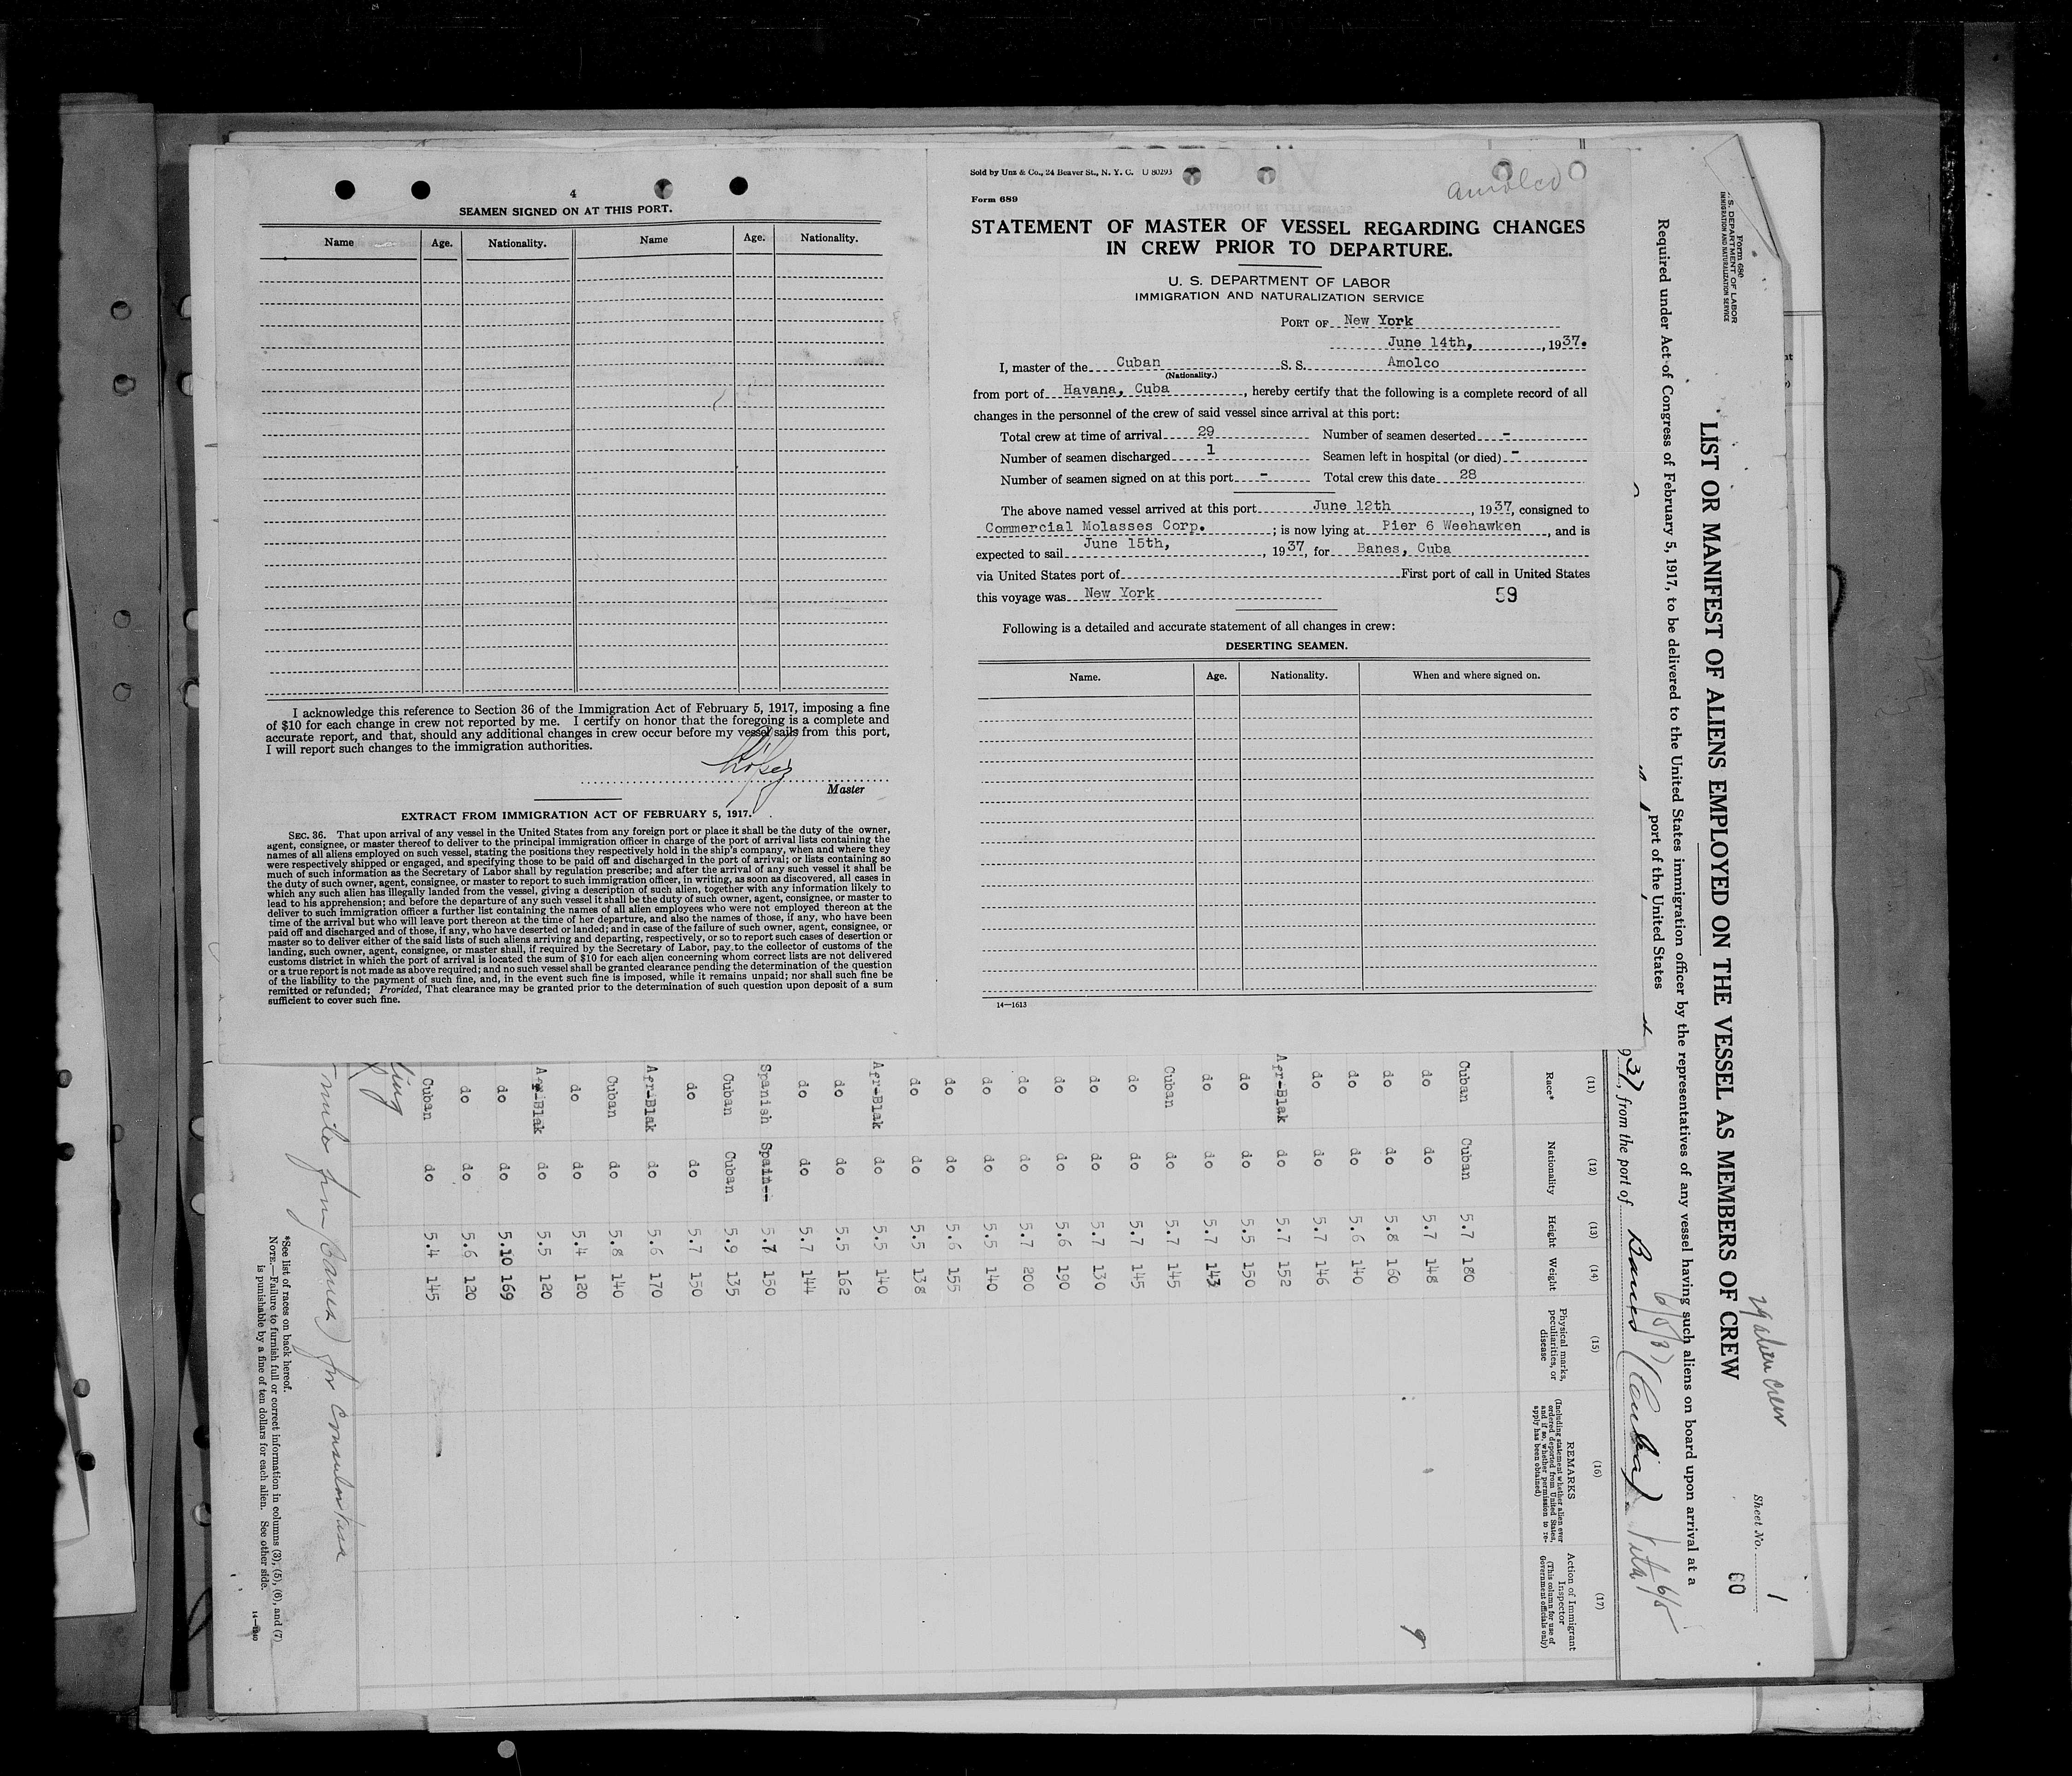 4
SEAMEN SIGNED ON AT THIS PORT.
Name Age. Nationality. Name Age. Nationality.
I acknowledge this reference to Section 36 of the Immigration Act of February 5, 1917, imposing a fine
of $10 for each change in crew not reported by me. I certify on honor that the foregoing is a complete and
accurate report, and that, should any additional changes in crew occur before my vessel sails from this port,
I will report such changes to the immigration authorities.
Master
EXTRACT FROM IMMIGRATION ACT OF FEBRUARY 5, 1917.
SEC. 36. That upon arrival of any vessel in the United States from any foreign port or place it shall be the duty of the owner,
agent, consignee, or master thereof to deliver to the principal immigration officer in charge of the port of arrival lists containing the
names of all aliens employed on such vessel, stating the positions they respectively hold in the ship's company, when and where they
were respectively shipped or engaged, and specifying those to be paid off and discharged in the port of arrival; or lists containing so
much of such information as the Secretary of Labor shall by regulation prescribe; and after the arrival of any such vessel it shall be
the duty of such owner, agent, consignee, or master to report to such immigration officer, in writing, as soon as discovered, all cases in
which any such alien has illegally landed from the vessel, giving a description of such alien, together with any information likely to
lead to his apprehension; and before the departure of any such vessel it shall be the duty of such owner, agent, consignee, or master to
deliver to such immigration officer a further list containing the names of all alien employees who were not employed thereon at the
time of the arrival but who will leave port thereon at the time of her departure, and also the names of those, if any, who have been
paid off and discharged and of those, if any, who have deserted or landed; and in case of the failure of such owner, agent, consignee, or
master so to deliver either of the said lists of such aliens arriving and departing, respectively, or so to report such cases of desertion or
landing, such owner, agent, consignee, or master shall, if required by the Secretary of Labor, pay to the collector of customs of the
customs district in which the port of arrival is located the sum of $10 for each alien concerning whom correct lists are not delivered
or a true report is not made as above required; and no such vessel shall be granted clearance pending the determination of the question
of the liability to the payment of such fine, and, in the event such fine is imposed, while it remains unpaid; nor shall such fine be
remitted or refunded; Provided, That clearance may be granted prior to the determination of such question upon deposit of a sum
sufficient to cover such fine.
Sold by Unz & Co., 24 Beaver St., N. Y. C. U 80293
Amolco
Form 689
STATEMENT OF MASTER OF VESSEL REGARDING CHANGES
IN CREW PRIOR TO DEPARTURE.
U. S. DEPARTMENT OF LABOR
IMMIGRATION AND NATURALIZATION SERVICE
PORT OF New York
June 14th, , 1937.
I, master of the Cuban S. S. Amolco
(Nationality.)
from port of Havana, Cuba , hereby certify that the following is a complete record of all
changes in the personnel of the crew of said vessel since arrival at this port:
Total crew at time of arrival 29 Number of seamen deserted -
Number of seamen discharged 1 Seamen left in hospital (or died) -
Number of seamen signed on at this port - Total crew this date 28
The above named vessel arrived at this port June 12th , 1937, consigned to
Commercial Molasses Corp. ; is now lying at Pier 6 Weehawken , and is
expected to sail June 15th, , 1937, for Banes, Cuba
via United States port of First port of call in United States
this voyage was New York 59
Following is a detailed and accurate statement of all changes in crew:
DESERTING SEAMEN.
Name. Age. Nationality. When and where signed on.
14—1613
Form 680
U. S. DEPARTMENT OF LABOR
IMMIGRATION AND NATURALIZATION SERVICE
29 alien crew
Sheet No. 1
60
LIST OR MANIFEST OF ALIENS EMPLOYED ON THE VESSEL AS MEMBERS OF CREW
Required under Act of Congress of February 5, 1917, to be delivered to the United States immigration officer by the representatives of any vessel having such aliens on board upon arrival at a
port of the United States
6/5/37
937, from the port of Banes (Cuba)
(11) (12) (13) (14) (15) (16) (17)
Race* Nationality Height Weight Physical marks, peculiarities, or disease REMARKS (Including statement whether alien ever ordered deported from United States, and if so, whether permission to reapply has been obtained) Action of Immigrant Inspector (This column for use of Government officials only)
Cuban Cuban 5.7 180
do do 5.7 148
do do 5.8 160
do do 5.6 140
do do 5.7 146
Afr-Blak do 5.7 152
do do 5.5 150
do do 5.7 143
Cuban do 5.7 145
do do 5.7 145
do do 5.7 130
do do 5.6 190
do do 5.7 200
do do 5.5 140
do do 5.6 155
do do 5.5 138
Afr-Blak do 5.5 140
do do 5.5 162
do do 5.7 144
Spanish Spain-- 5.7 150
Cuban Cuban 5.9 135
do do 5.7 150
Afr-Blak do 5.6 170
Cuban do 5.8 140
do do 5.4 120
Afr-Blak do 5.5 120
do do 5.10 169
do do 5.6 120
Cuban do 5.4 145
for consular visa
*See list of races on back hereof.
NOTE.—Failure to furnish full or correct information in columns (3), (5), (6), and (7)
is punishable by a fine of ten dollars for each alien. See other side.